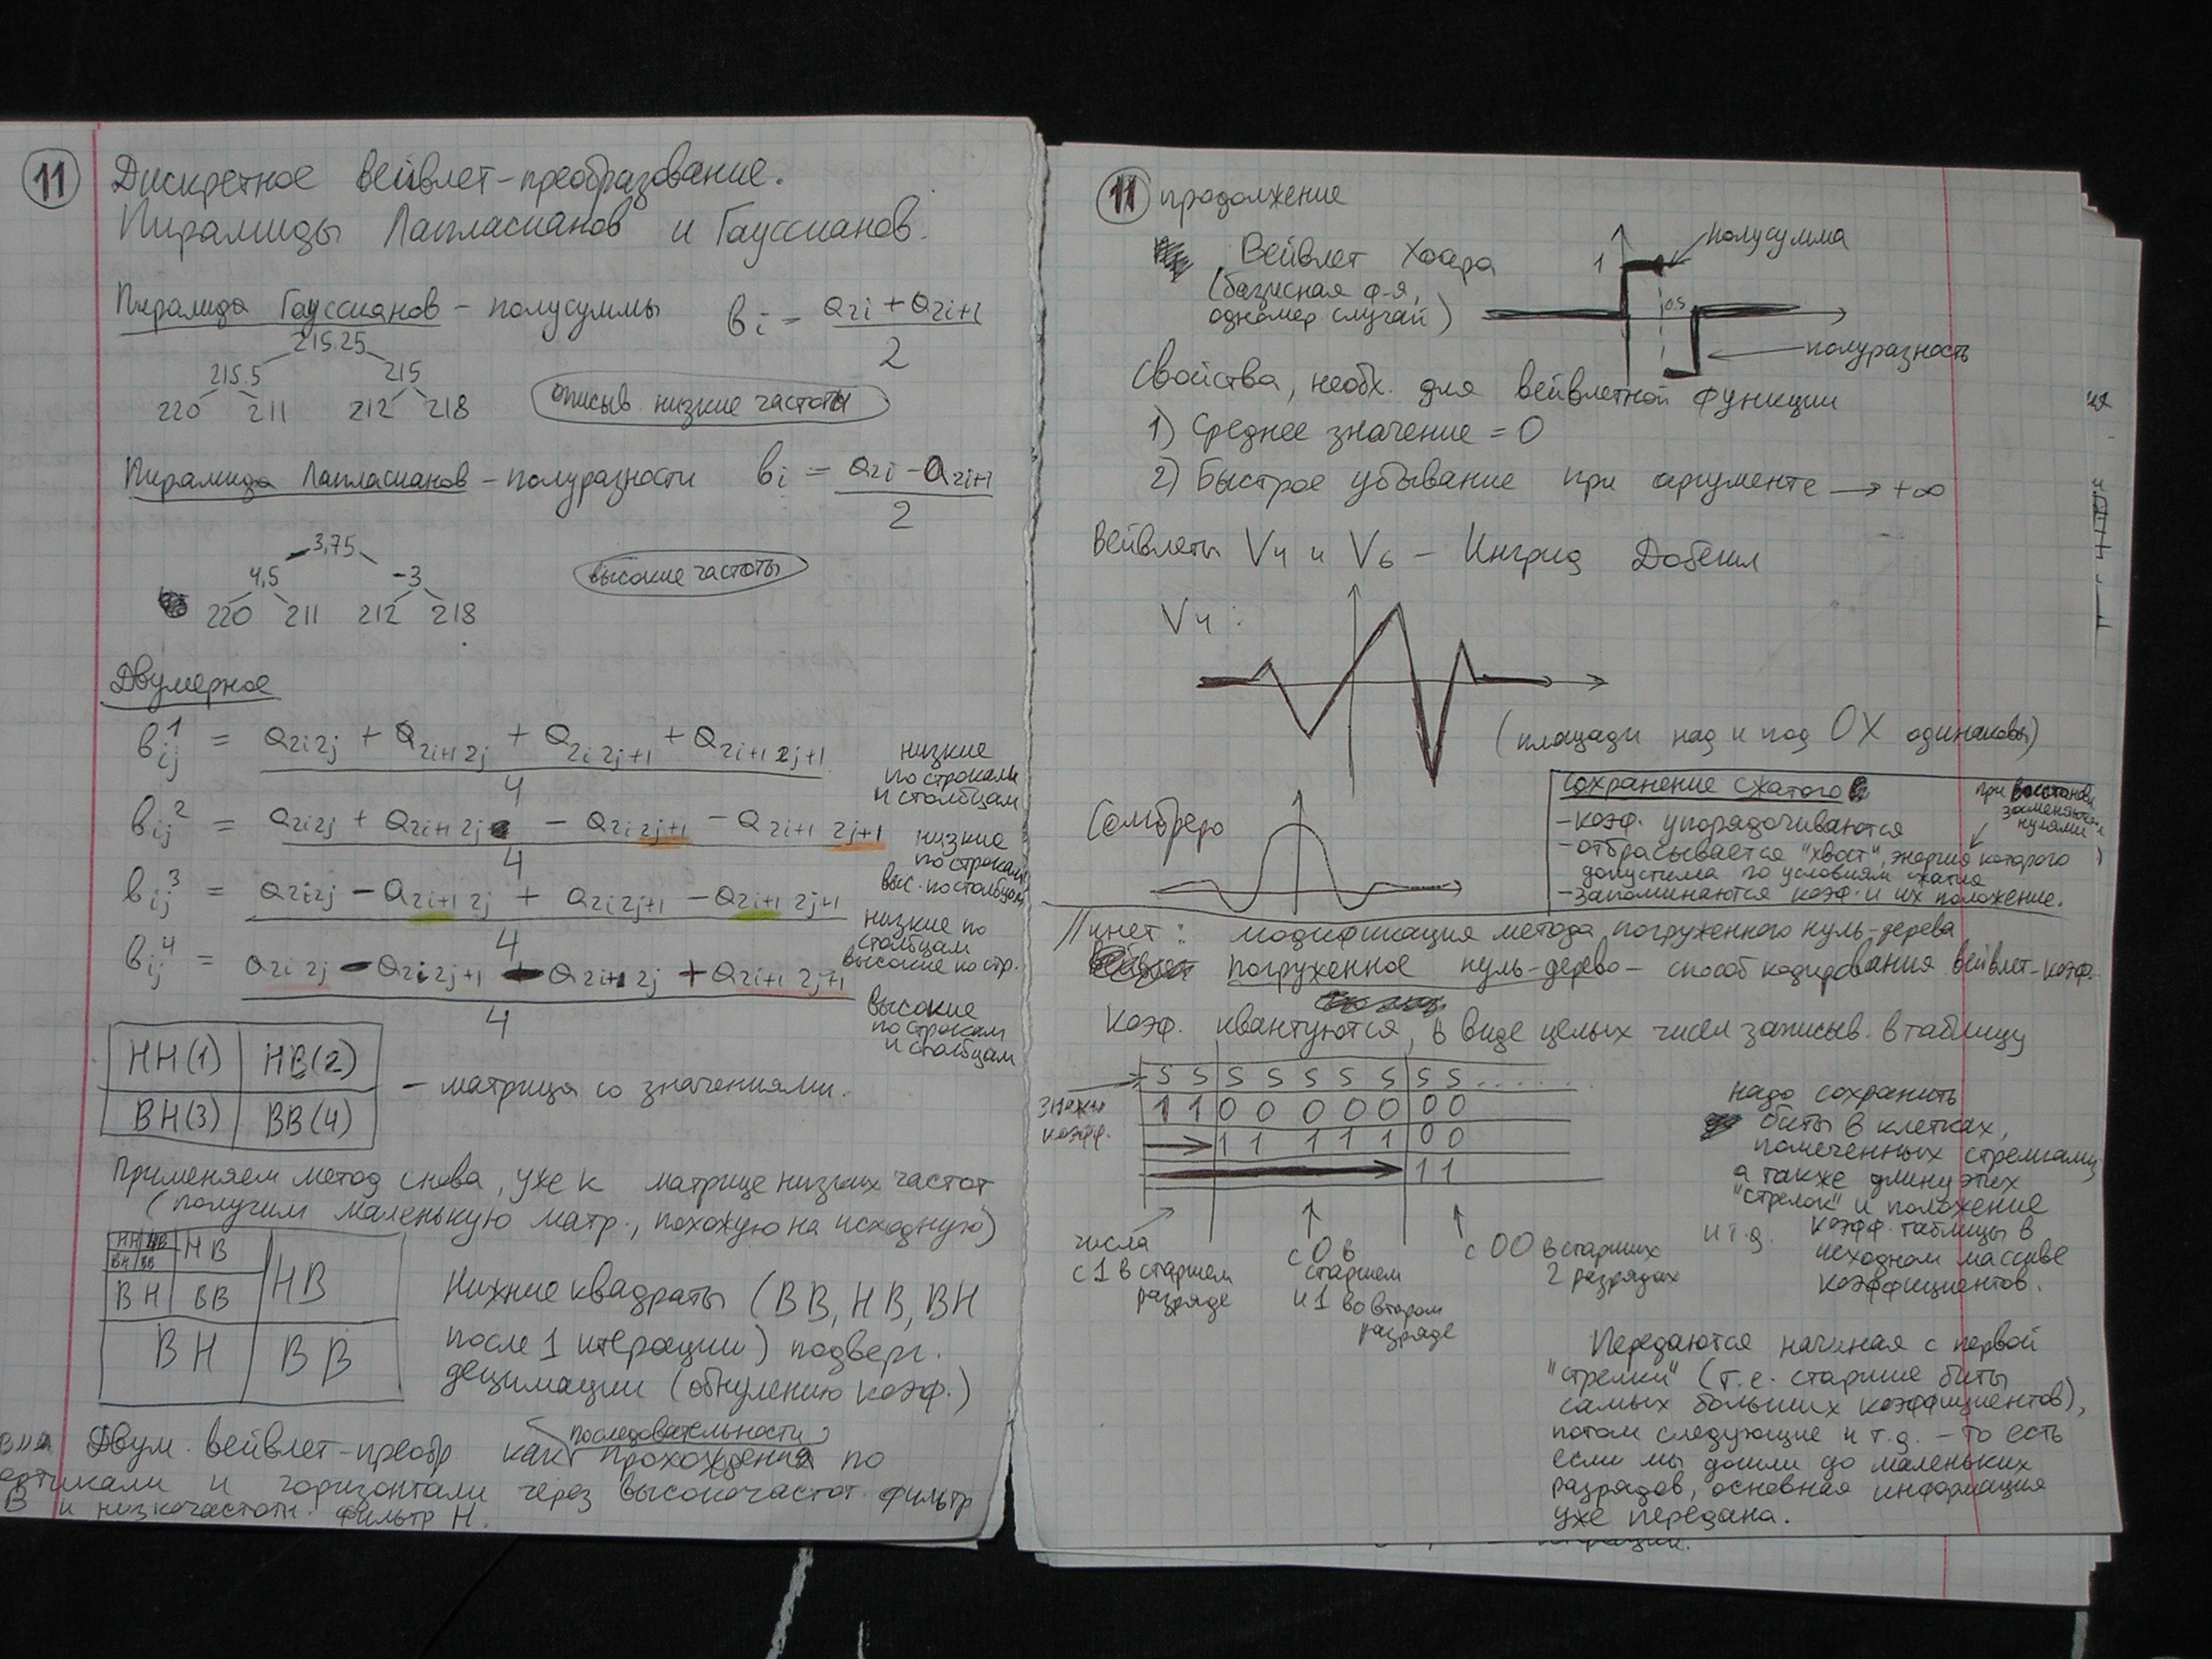 11
Дискретное вейвлет-преобразование.
Пирамиды Лапласианов и Гауссианов.
Пирамида Гауссианов - полусуммы bi = (a2i + a2i+1) / 2
215.25
215.5 215
220 211 212 218
описыв низкие частоты
Пирамида Лапласианов - полуразности bi = (a2i - a2i+1) / 2
3,75
4,5 -3
220 211 212 218
высокие частоты
Двумерное
bij^1 = (a2i2j + a2i+1 2j + a2i 2j+1 + a2i+1 2j+1) / 4
низкие
по строкам
и столбцам
bij^2 = (a2i2j + a2i+1 2j - a2i 2j+1 - a2i+1 2j+1) / 4
низкие
по строкам
выс. по столбцам
bij^3 = (a2i2j - a2i+1 2j + a2i2j+1 - a2i+1 2j+1) / 4
низкие по
столбцам
высокие по стр.
bij^4 = (a2i 2j - a2i2j+1 - a2i+1 2j + a2i+1 2j+1) / 4
высокие
по строкам
и столбцам
НН(1) НВ(2)
ВН(3) ВВ(4)
- матрица со значениями.
Применяем метод снова, уже к матрице низких частот
(получим маленькую матр., похожую на исходную)
НН НВ НВ
ВН ВВ
ВН ВВ НВ
ВН ВВ
Нижние квадраты (ВВ, НВ, ВН
после 1 итерации) подверг.
децимации (обнулению коэф.)
последовательности
Двум. вейвлет-преобр как прохождения по
вертикали и горизонтали через высокочастот. фильтр
В и низкочастотн. фильтр Н.
11 продолжение
Вейвлет Хаара
(базисная ф-я,
одномер случай)
1
полусумма
0.5
полуразность
Свойства, необх. для вейвлетной функции
1) Среднее значение = 0
2) Быстрое убывание при аргументе → +∞
Вейвлеты V4 и V6 - Ингрид Добеши
V4:
(площади над и под OX одинаковы)
Сомбреро
сохранение сжатого
- коэф. упорядочиваются
- отбрасывается "хвост", энергия которого
допустима по условиям сжатия
- запоминаются коэф. и их положение.
при восстанов
заменяются
нулями
Пинет: модификация метода погруженного нуль-дерева
погруженное нуль-дерево - способ кодирования вейвлет-коэф.
Коэф. квантуются, в виде целых чисел записыв. в таблицу
знаки
коэфф.
S S S S S S S S S .....
1 1 0 0 0 0 0 0 0
→ 1 1 1 1 1 0 0
→ 1 1
числа
с 1 в старшем
разряде
с 0 в
старшем
и 1 во втором
разряде
с 00 в старших
2 разрядах
и т.д.
надо сохранить
биты в клетках,
помеченных стрелками
а также длину этих
"стрелок" и положение
коэфф. таблицы в
исходном массиве
коэффициентов.
Передаются начиная с первой
"стрелки" (т.е. старшие биты
самых больших коэффициентов),
потом следующие и т.д. - то есть
если мы дошли до маленьких
разрядов, основная информация
уже передана.